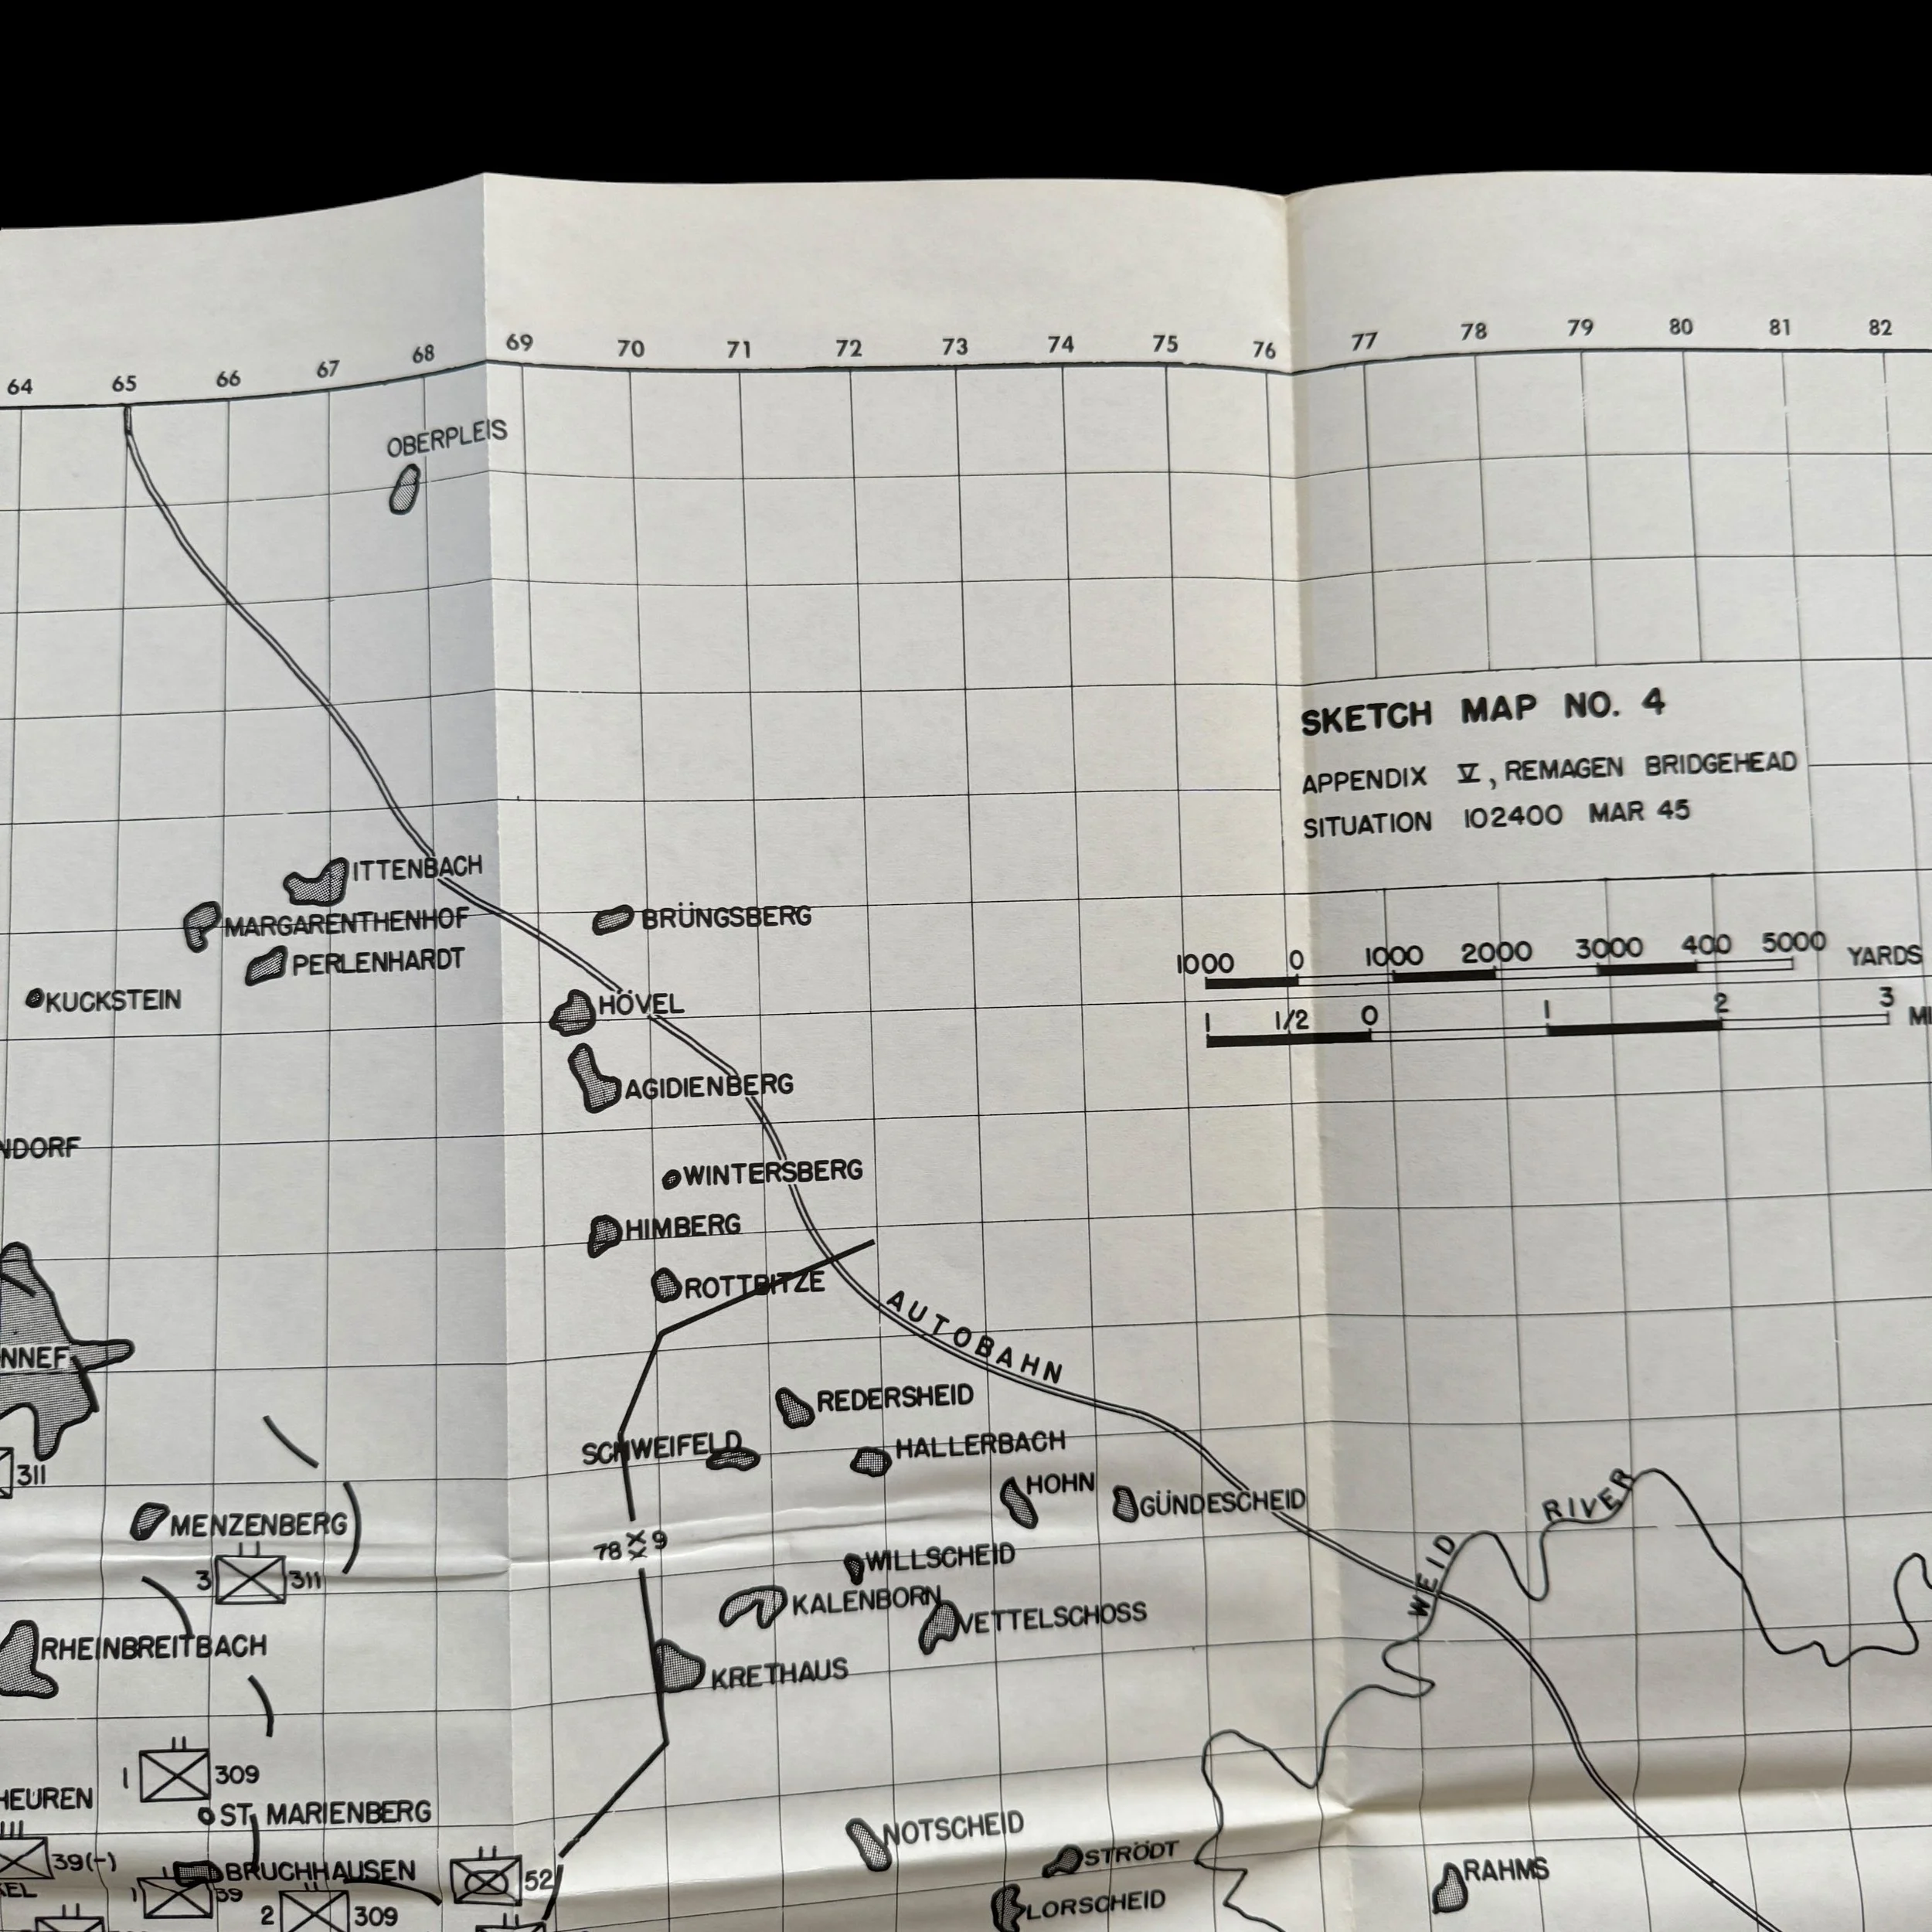 64 65 66 67 68 69 70 71 72 73 74 75 76 77 78 79 80 81 82
OBERPLEIS
SKETCH MAP NO. 4
APPENDIX V, REMAGEN BRIDGEHEAD
SITUATION 102400 MAR 45
ITTENBACH
MARGARENTHENHOF
BRÜNGSBERG
PERLENHARDT
1000 0 1000 2000 3000 400 5000 YARDS
KUCKSTEIN
HÖVEL
1 1/2 0 1 2 3 MI
AGIDIENBERG
NDORF
WINTERSBERG
HIMBERG
ROTTBITZE
AUTOBAHN
NNEF
REDERSHEID
SCHWEIFELD
HALLERBACH
311
HOHN
GÜNDESCHEID
WEID RIVER
MENZENBERG
78 XX 9
WILLSCHEID
3 311
KALENBORN
VETTELSCHOSS
RHEINBREITBACH
KRETHAUS
1 309
HEUREN
ST. MARIENBERG
NOTSCHEID
39(-)
STRÖDT
BRUCHHAUSEN
52
RAHMS
KEL
1 39
LORSCHEID
2 309